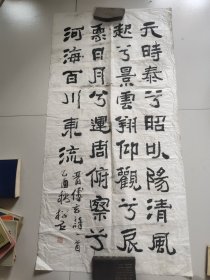 天時泰兮昭以陽清風
起兮景雲翔仰觀兮辰
象日月兮運周俯察兮
河海百川東流
傅玄詩一首
乙酉秋